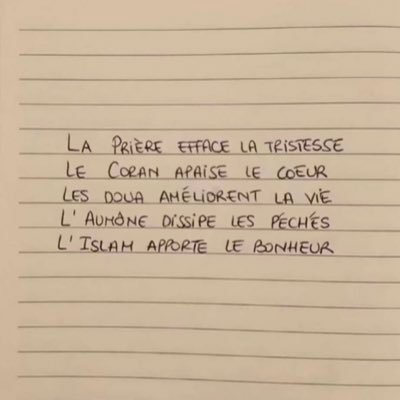 LA PRIÈRE EFFACE LA TRISTESSE
LE CORAN APAISE LE COEUR
LES DOUA AMÉLIORENT LA VIE
L'AUMÔNE DISSIPE LES PÉCHÉS
L'ISLAM APPORTE LE BONHEUR